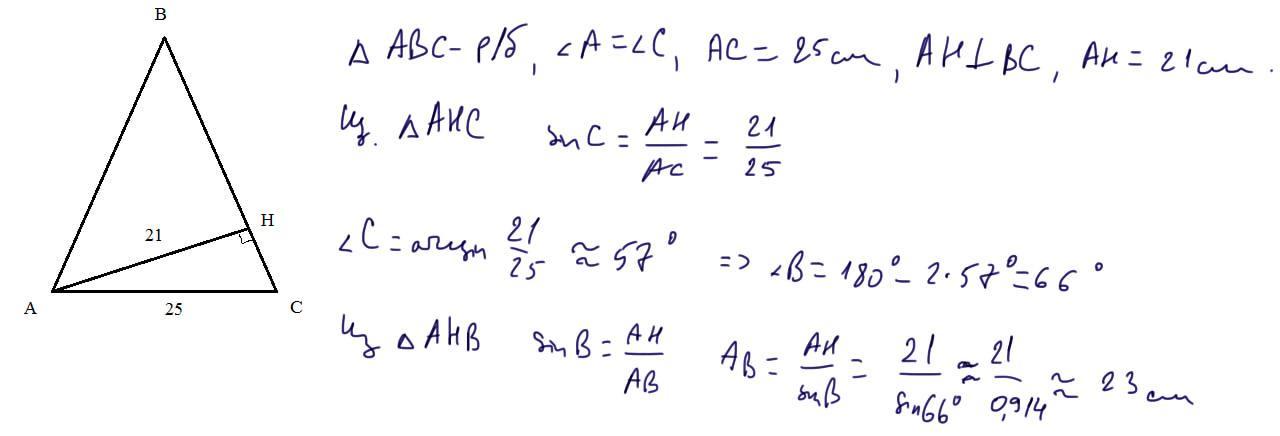 B
H
21
A
25
C
Δ ABC - р/б, ∠A = ∠C, AC = 25 cm, AH ⊥ BC, AH = 21 cm.
Из. Δ AHC sin C = AH/AC = 21/25
∠C = arcsin 21/25 ≈ 57° => ∠B = 180° - 2·57° = 66°
Из Δ AHB sin B = AH/AB AB = AH/sin B = 21/sin 66° ≈ 21/0,914 ≈ 23 cm